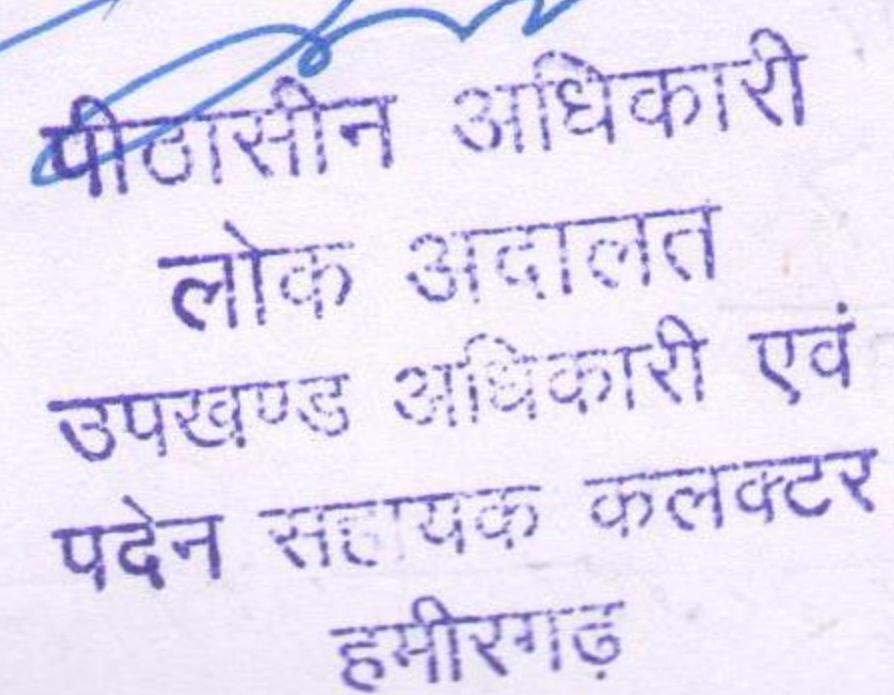 पीठासीन अधिकारी
लोक अदालत
उपखण्ड अधिकारी एवं
पदेन सहायक कलक्टर
हमीरगढ़